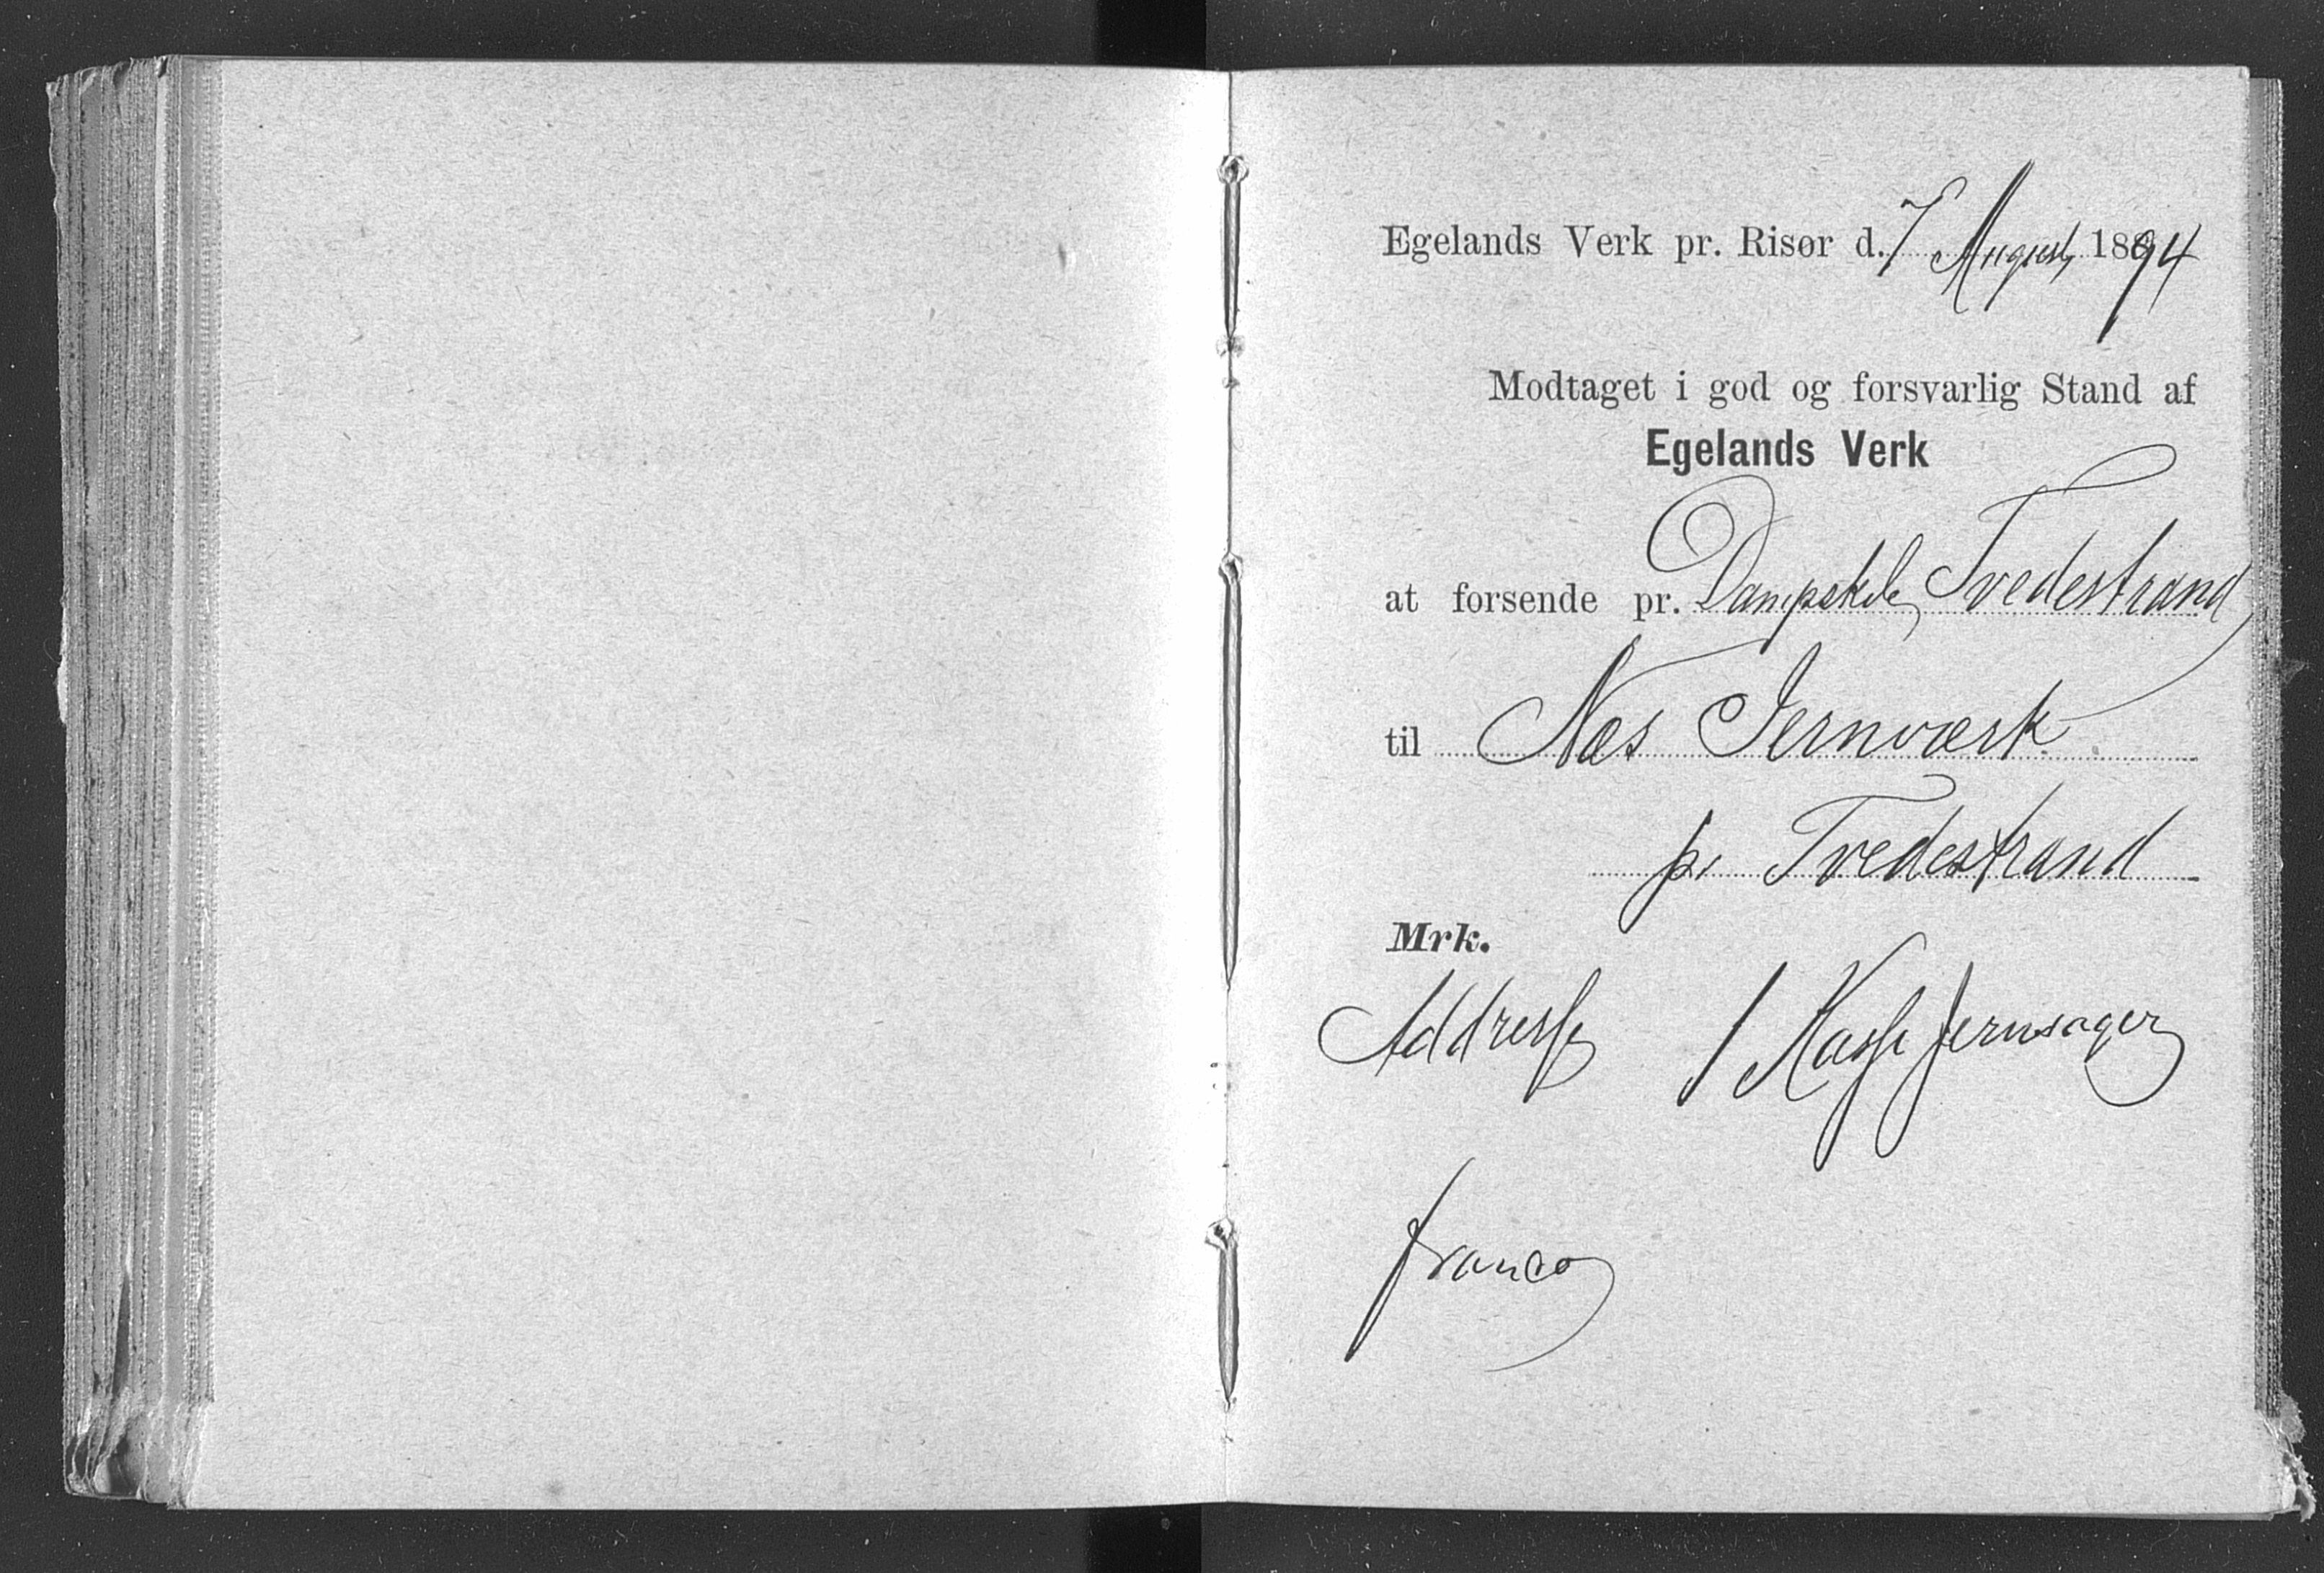 Egelands Verk pr. Risør d. 7 August 1894
Modtaget i god og forsvarlig Stand af
Egelands Verk
at forsende pr. Dampskib Tvedestrand
til Næs Jernværk
pr Tvedestrand
Mrk.
Addresse 1 Kasse Jernsager
franco